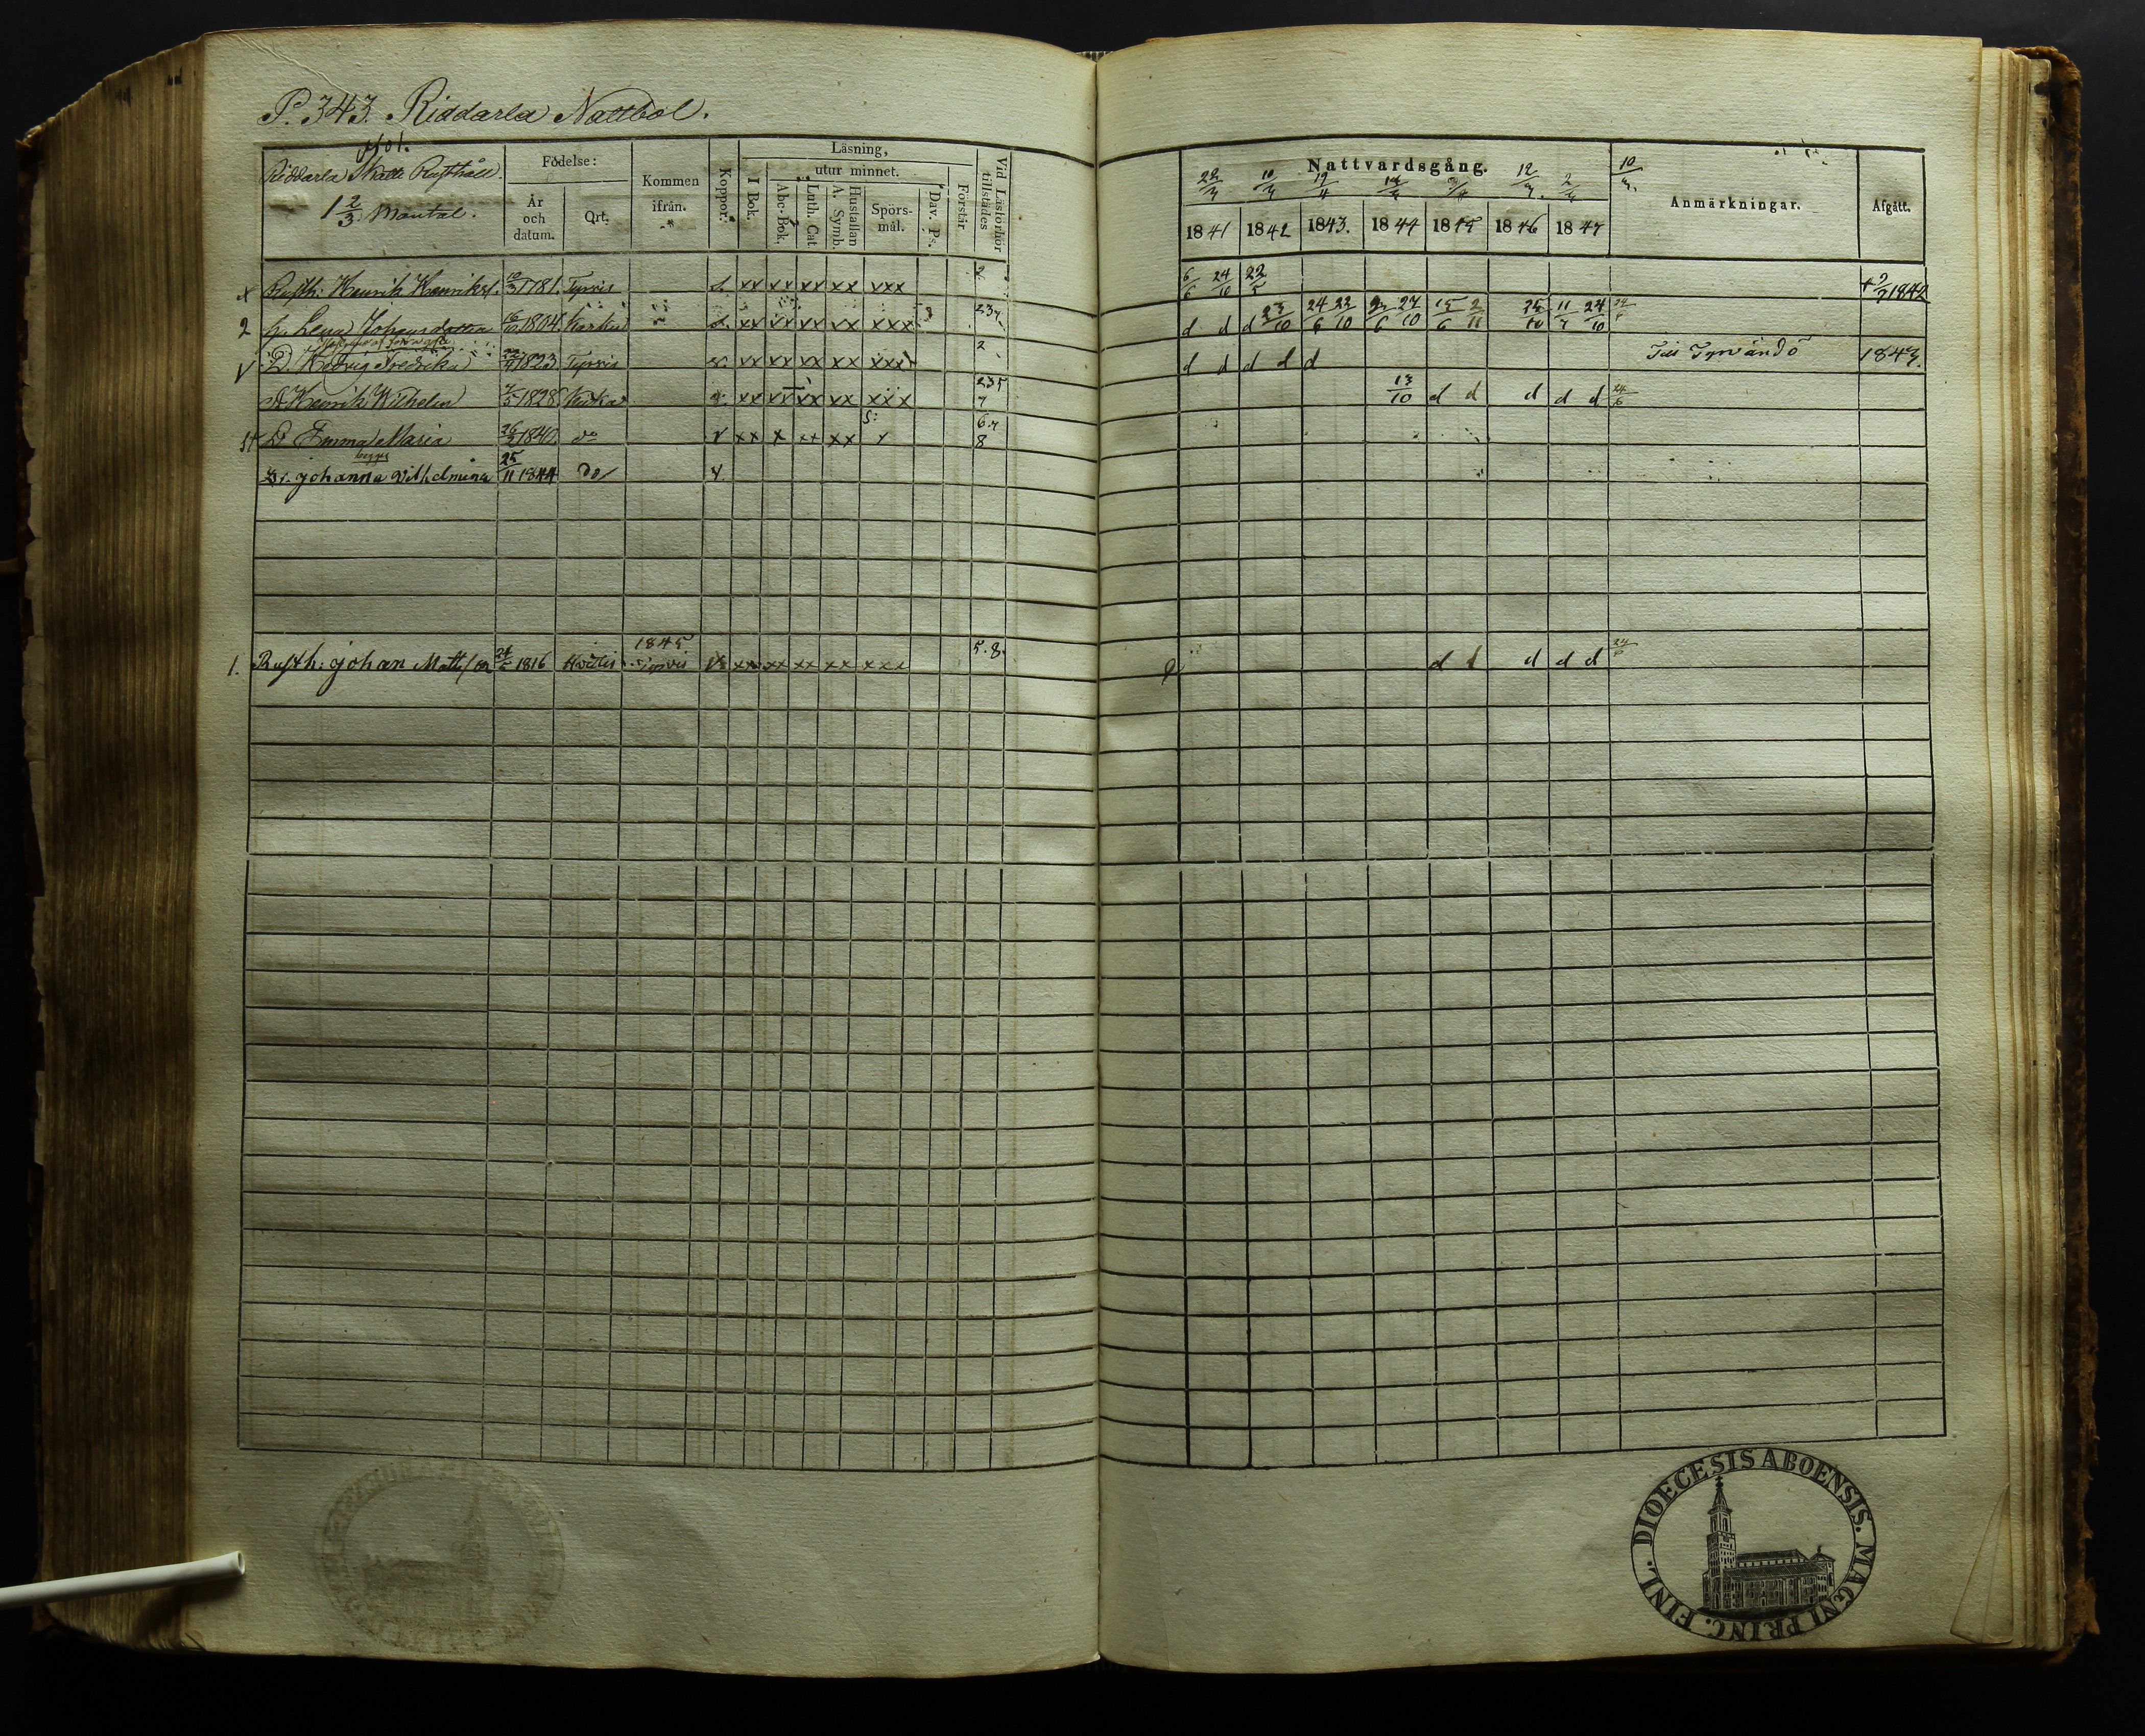 P. 343. Riddarla Nattbol.
Riddarla Skatte Rusthåll.
1 2/3 Mantal.
Födelse:
År och datum.
Ort.
Kommen ifrån.
Koppor.
Läsning,
I Bok.
utur minnet.
Abc-Bok.
Luth. Cat.
Hustaflan A. Symb.
Spörsmål.
Dav. Ps.
Förstår
Vid Läsförhör tillstädes
Nattvardsgång.
1841 1842 1843. 1844 1845 1846 1847
Anmärkningar.
Afgått.
Rusth: Henrik Henrikss. 10/3 1781. Tyrvis xx xx xx xx xxx 2 6/6 24/10 22/5 1842
2 h. Lena Johansdotter 16/10 1804 Karku xx xx xx xx xxx 3 237 d d d 23/10 24/6 22/10 27/10 15/6 2/11 25/10 11/7 24/10
D. Hedvig Fredrika 1823 Tyrvis xx xx xx xx xxx 2 d d d d d Till Tyrvändö 1843.
Henrik Wilhelm 1828 xx xx xx xx xxx 235 7 13/10 d d d d d 24/6
D Emma Maria 26/2 1840 do xx x xx xx 5: 67 8
johanna Vilhelmina 25/11 1844 do
1. Rusth: johan Mattsson 24/5 1816 1845 Tyrvis xx xx xx xx xxx 5.8. d d d d d
DIOECESIS ABOENSIS. MAGNI PRINC. FINL.